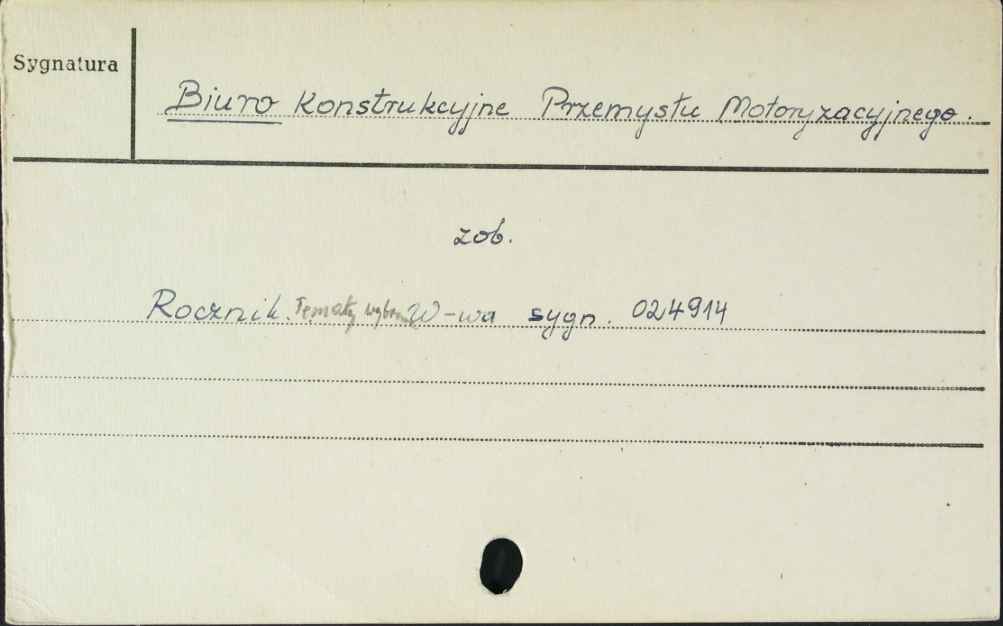 Sygnatura
Biuro Konstrukcyjne Przemysłu Motoryzacyjnego.
zob.
Rocznik. Tematy W-wa sygn. 024914